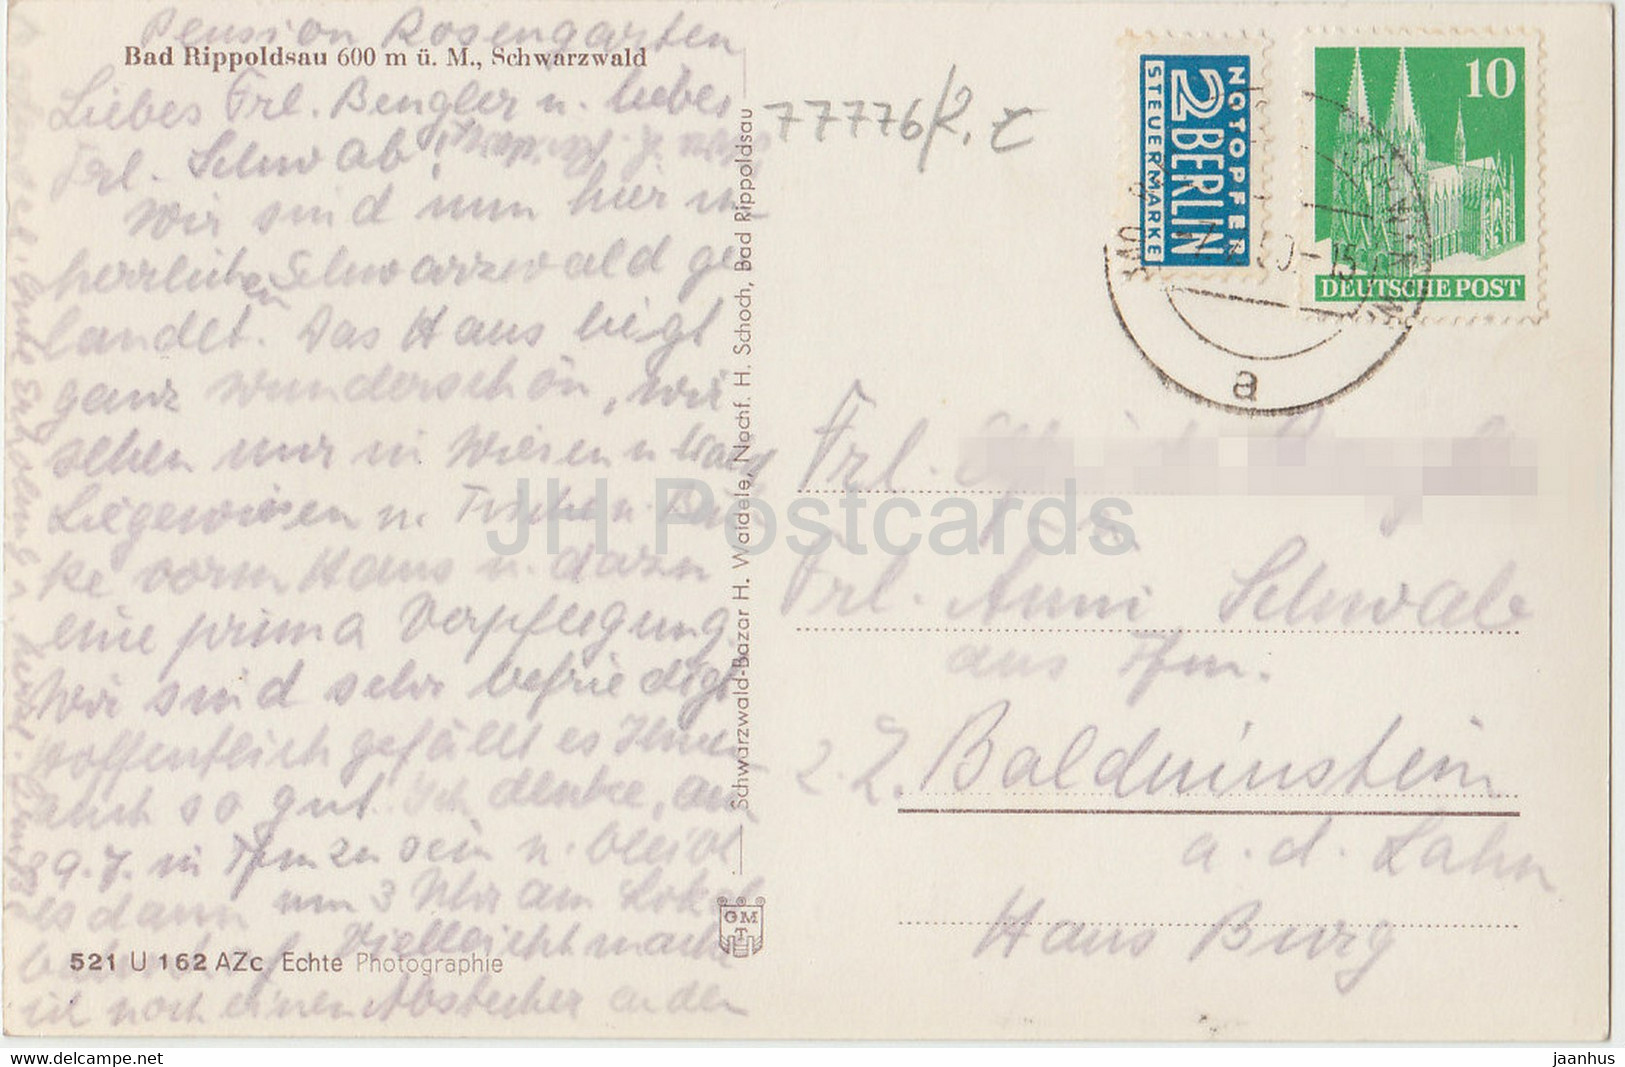 Pension Rosengarten
Bad Rippoldsau 600 m ü. M., Schwarzwald
Liebes Frl. Bengler u. liebes
Frl. Schwab!
Wir sind nun hier im
herrlichen Schwarzwald ge
landet. Das Haus liegt
ganz wunderschön, wir
sehen nur in Wiesen u Wald
Liegewiesen u. Tischen Bän
ke vorm Haus u. dazu
eine prima Verpflegung
Wir sind sehr befriedigt
hoffentlich gefällt es Ihnen
auch so gut. Ich denke, am
29.7. in Ffm zu sein u. bleibt
es dann um 3 Uhr am Lokal
Vielleicht mache
ich noch einen Abstecher an den
gute Erholung
521 U 162 AZc Echte Photographie
Schwarzwald-Bazar H. Waidele, Nachf. H. Schoch, Bad Rippoldsau
GMT
77776/2.
NOTOPFER
2 BERLIN
STEUERMARKE
10
DEUTSCHE POST
50.-15
a
Frl.
Frl. Anni Schwab
aus Ffm.
z. Z. Balduinstein
a. d. Lahn
Haus Burg
JH Postcards
delcampe.net
jaanhus